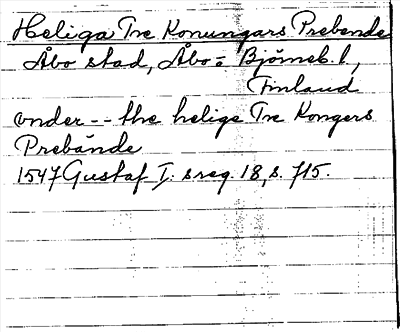 Heliga Tre Konungars Prebende
Åbo stad, Åbo = Björneb. l,
Finland
vnder -- the helige Tre Kongers
Prebände
1547 Gustaf I: s reg. 18, s. 715.